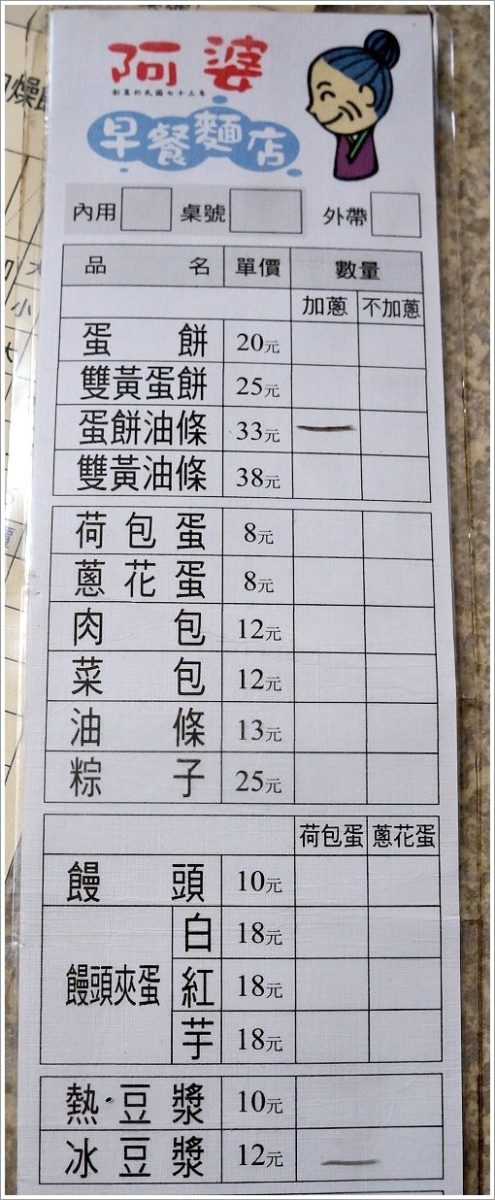 阿婆
創業於民國七十三年
早餐麵店
內用 桌號 外帶
品名 單價 數量
加蔥 不加蔥
蛋餅 20元
雙黃蛋餅 25元
蛋餅油條 33元
雙黃油條 38元
荷包蛋 8元
蔥花蛋 8元
肉包 12元
菜包 12元
油條 13元
粽子 25元
荷包蛋 蔥花蛋
饅頭 10元
饅頭夾蛋 白 18元
紅 18元
芋 18元
熱豆漿 10元
冰豆漿 12元